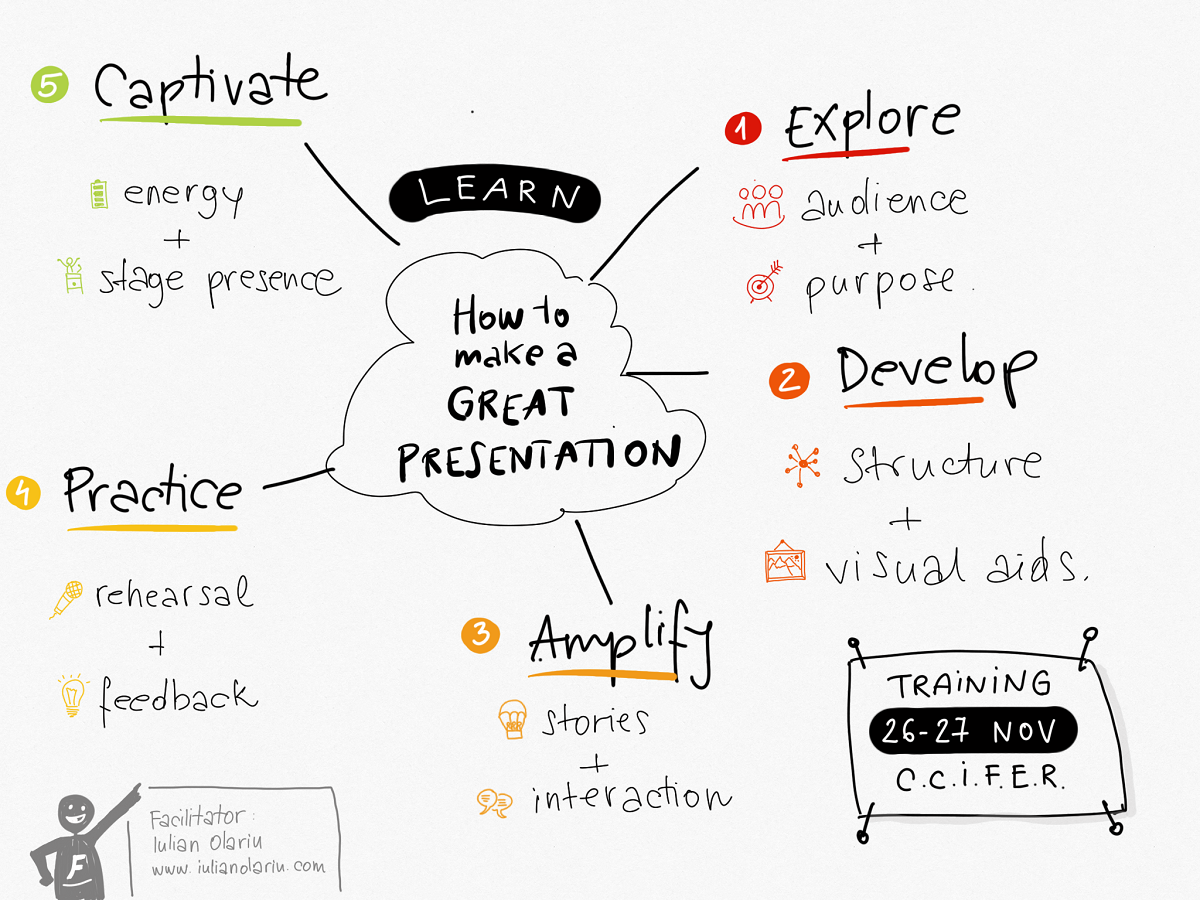 LEARN
How to
make a
GREAT
PRESENTATION
1 Explore
audience
+
purpose.
2 Develop
structure
+
visual aids.
3 Amplify
stories
+
interaction
4 Practice
rehearsal
+
feedback
5 Captivate
energy
+
stage presence
TRAINING
26-27 NOV
C.C.I.F.E.R.
F
Facilitator:
Iulian Olariu
www.iulianolariu.com